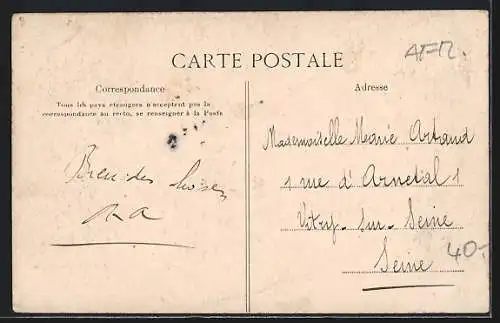 CARTE POSTALE
Correspondance
Tous les pays étrangers n'acceptent pas la
correspondance au recto, se renseigner à la Poste
Bien des choses
Adresse
Mademoiselle Marie Artaud
1 rue d'Arnetal 1
Vitry-sur-Seine
Seine
40-